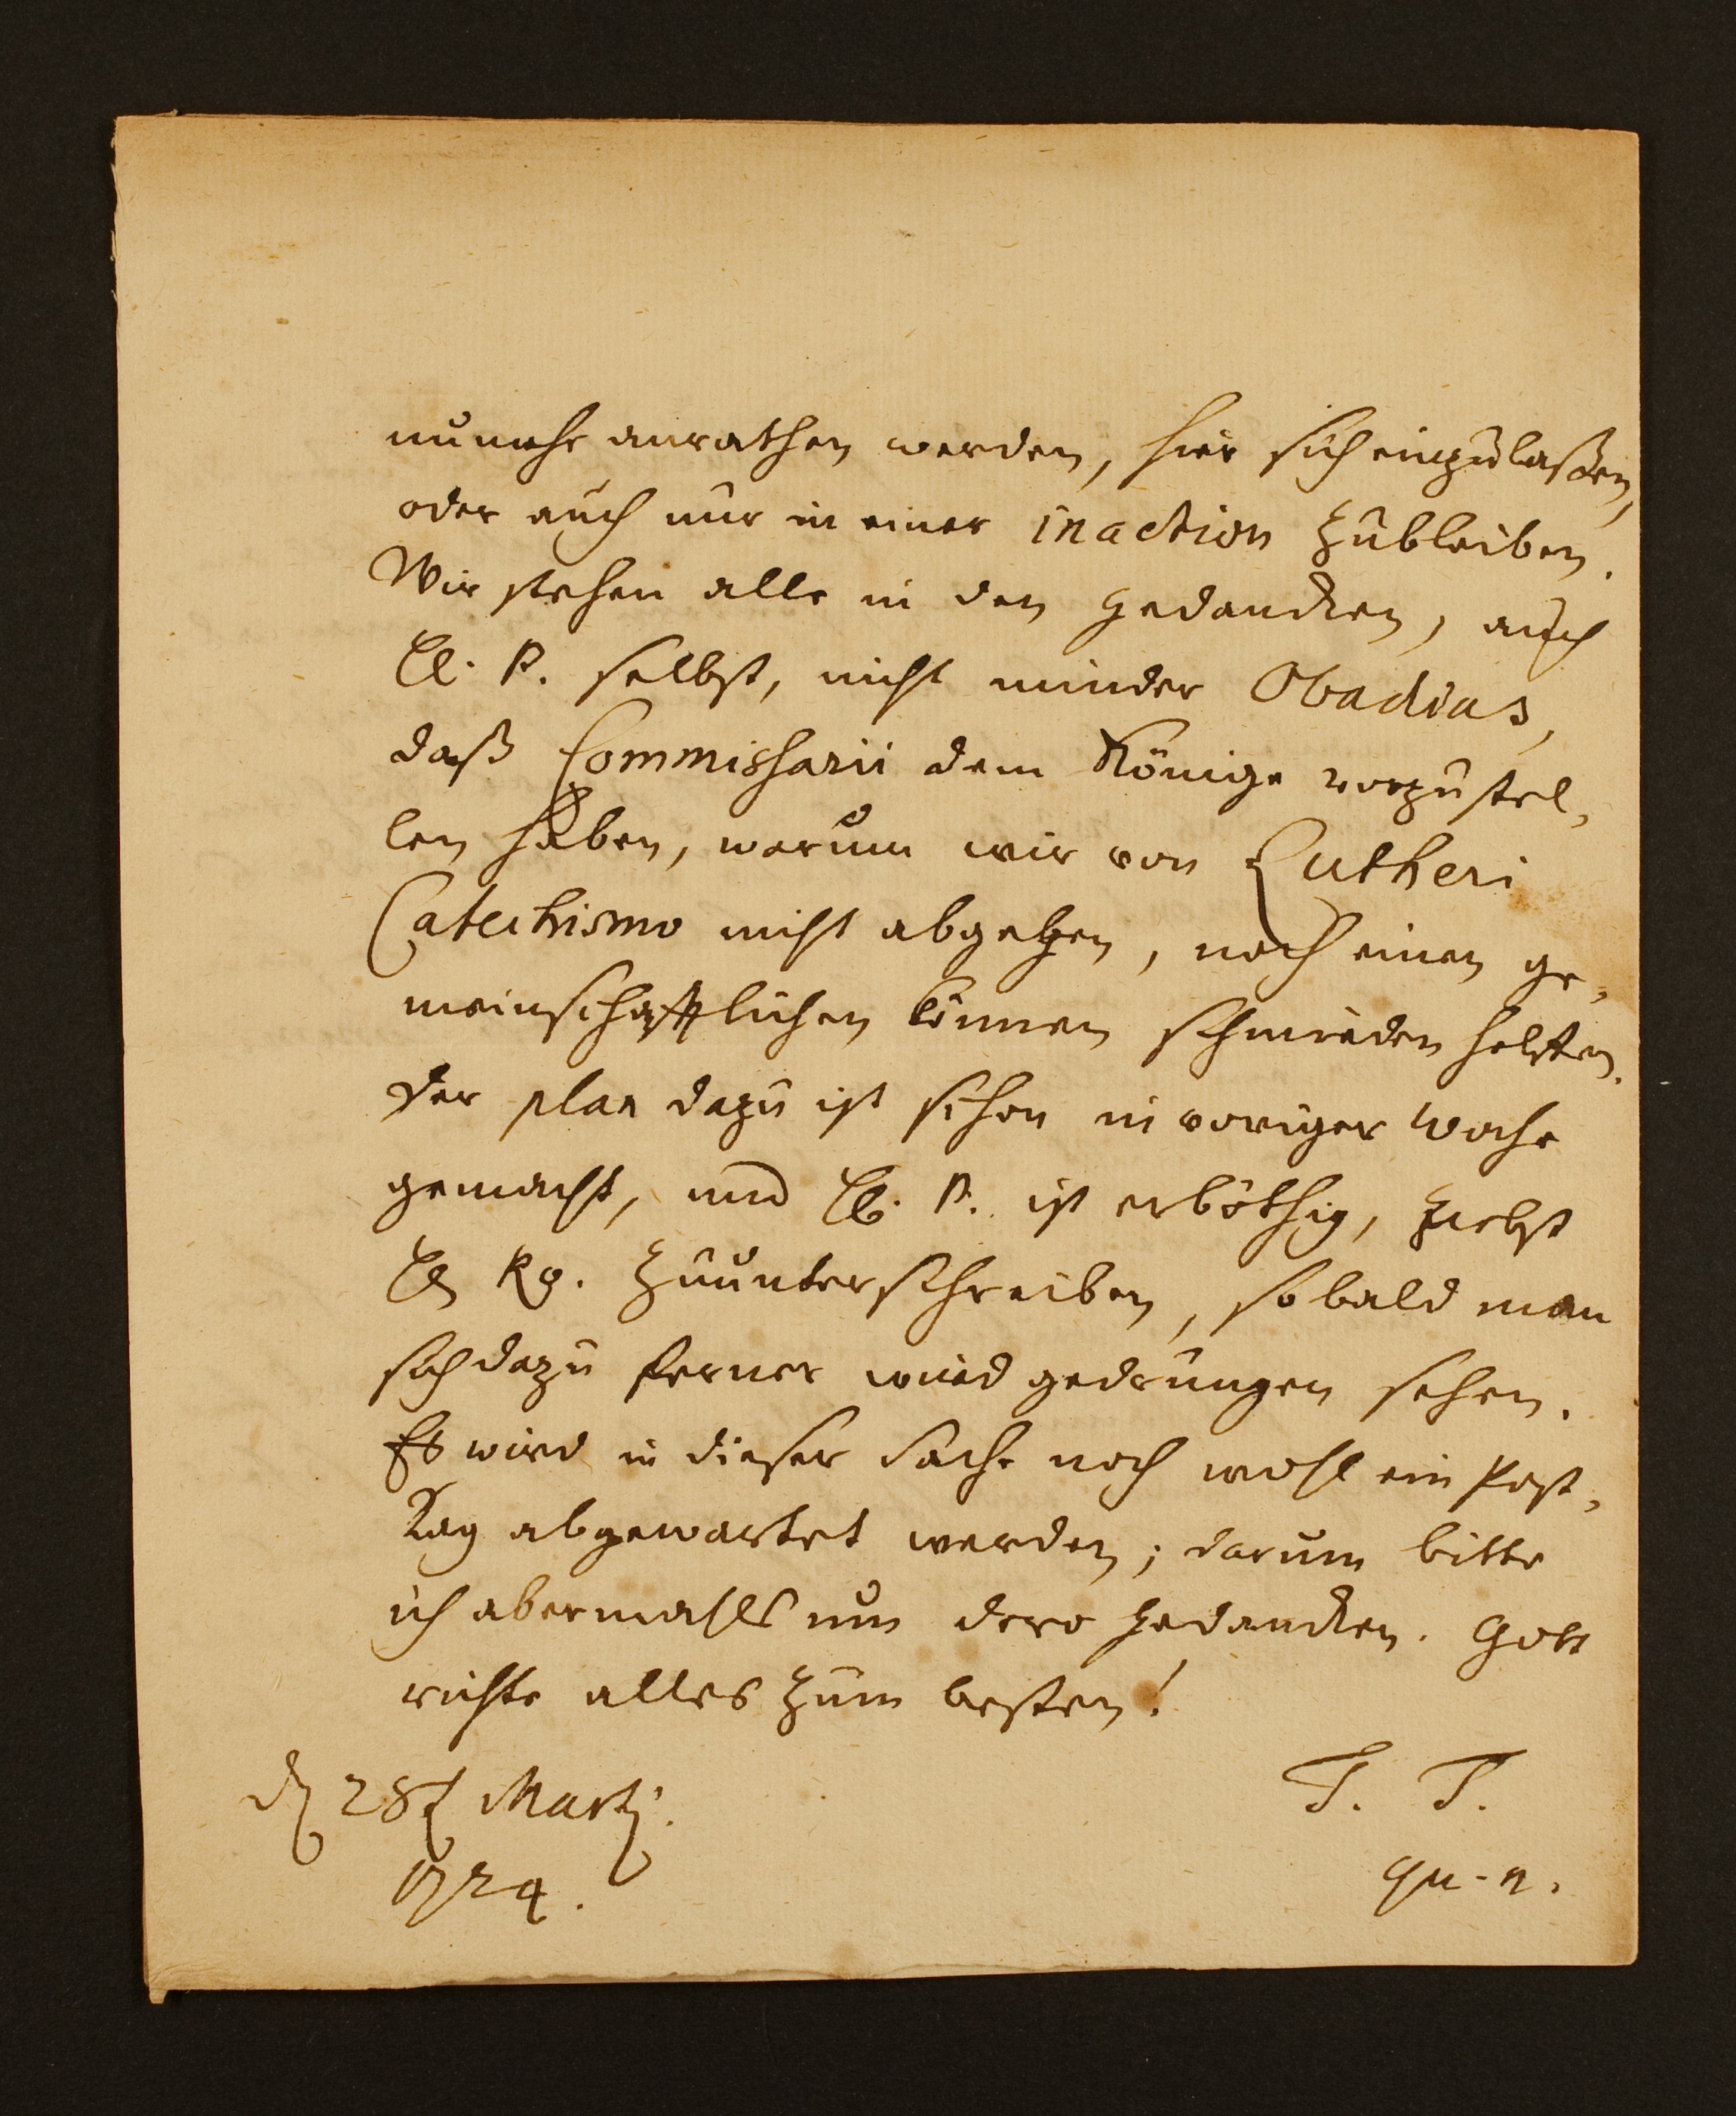 nunmehr anrathen werden, hier sich einzulaßen,
oder auch nur in einer inaction zubleiben.
Wir stehen alle in den gedancken, auch
selbst, nicht minder Obadias,
daß Commissarii dem Könige vorzustel,
len haben, warum wir von Lutheri
Catechismo nicht abgehen, noch einen ge,
meinschafftlichen können schmieden helffen.
Der plan dazu ist schon in voriger Woche
gemacht, und ist erböthig,
zuunterschreiben, sobald man
sich dazu ferner wird gedrungen sehen.
Es wird in dieser Sache noch wohl ein Post,
Tag abgewartet werden; darum bitte
ich abermahls um dero gedancken. Gott
richte alles zum besten!
T. T.
d 28t Martj.
qu-n.
1724.